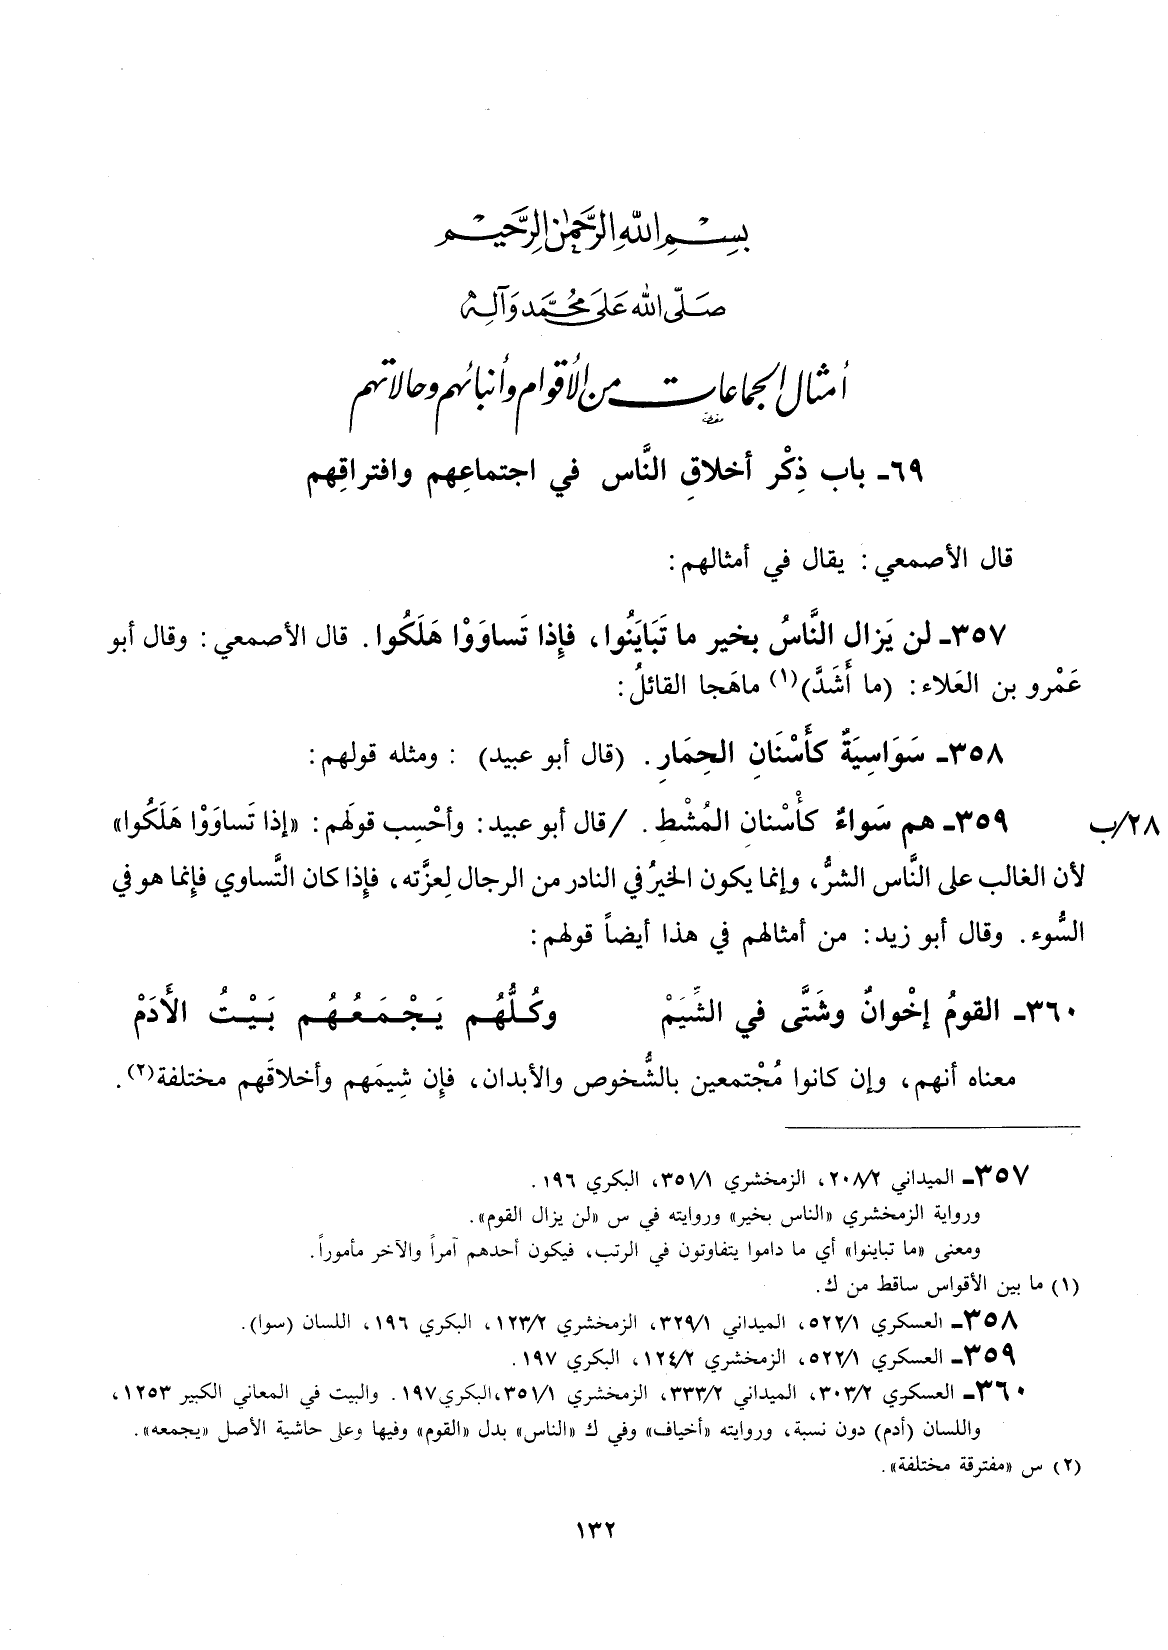 بِسْمِ اللهِ الرَّحْمٰنِ الرَّحِيْمِ
صَلَّى الله عَلَى مُحَمَّد وَآلِهِ
أمثال الجماعات من الأقوام وأنبائهم وحالاتهم
٦٩ـ باب ذِكْر أخلاقِ النَّاس في اجتماعِهم وافتراقِهم
قال الأصمعي: يقال في أمثالهم:
٣٥٧ـ لن يَزال النَّاسُ بخير ما تَبَايَنُوا، فإِذا تَساوَوْا هَلَكُوا. قال الأصمعي: وقال أبو
عَمْرو بن العَلاء: (ما أَشَدَّ)(١) ماهَجا القائلُ:
٣٥٨ـ سَوَاسِيَةٌ كأَسْنَانِ الحِمَارِ. (قال أبو عبيد) : ومثله قولهم:
٣٥٩ـ هم سَواءٌ كأَسْنانِ المُشْطِ. /قال أبو عبيد: وأحْسِب قولَهم: «إذا تَساوَوْا هَلَكُوا» ٢٨/ب
لأن الغالب على النَّاس الشرُّ، وإنما يكون الخيرُ في النادر من الرجال لِعزَّته، فإِذا كان التَّساوي فإِنما هو في
السُّوء. وقال أبو زيد: من أمثالهم في هذا أيضاً قولهم:
٣٦٠ـ القومُ إخْوانٌ وشَتَّى في الشِّيَمْ وكُلُّهُم يَجْمَعُهُم بَيْتُ الأَدَمْ
معناه أنهم، وإن كانوا مُجْتمعين بالشُّخوص والأبدان، فإِن شِيمَهم وأخلاقَهم مختلفة(٢).
٣٥٧ـ الميداني ٢٠٨/٢، الزمخشري ٣٥١/١، البكري ١٩٦.
ورواية الزمخشري «الناس بخير» وروايته في س «لن يزال القوم».
ومعنى «ما تباينوا» أي ما داموا يتفاوتون في الرتب، فيكون أحدهم آمراً والآخر مأموراً.
(١) ما بين الأقواس ساقط من ك.
٣٥٨ـ العسكري ٥٢٢/١، الميداني ٣٢٩/١، الزمخشري ١٢٣/٢، البكري ١٩٦، اللسان (سوا).
٣٥٩ـ العسكري ٥٢٢/١، الزمخشري ١٢٤/٢، البكري ١٩٧.
٣٦٠ـ العسكري ٣٠٣/٢، الميداني ٣٣٣/٢، الزمخشري ٣٥١/١،البكري١٩٧. والبيت في المعاني الكبير ١٢٥٣،
واللسان (أدم) دون نسبة، وروايته «أخياف» وفي ك «الناس» بدل «القوم» وفيها وعلى حاشية الأصل «يجمعه».
(٢) س «مفترقة مختلفة».
١٣٢